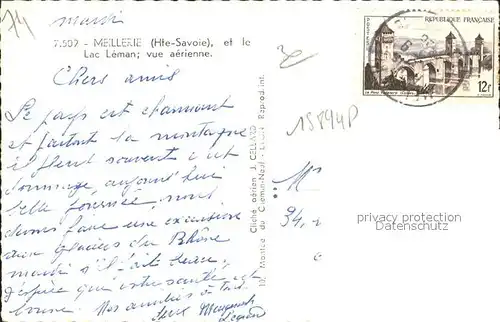 74
mardi
7.507 - MEILLERIE (Hte-Savoie), et le
Lac Léman; vue aérienne.
Chers amis
Le pays est charmant
et partout la montagne
il pleut souvent c'est
dommage, aujourd'hui
belle journée, nous
devons faire une excursion
aux glaciers du Rhône
mardi s'il fait beau,
j'espère que votre santé est
bonne. Nos amitiés à tous
Cliché aérien J. CELLARD
10, Montée du Chemin-Neuf - Reprod. int.
RÉPUBLIQUE FRANÇAISE
12f
15844P
34,-
privacy protection
Datenschutz